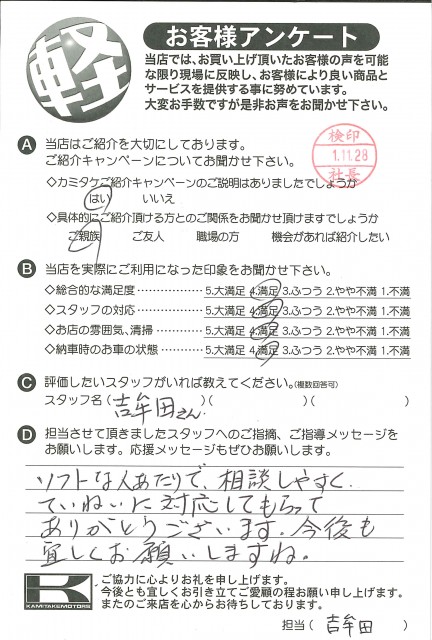 軽
お客様アンケート
当店では、お買い上げ頂いたお客様の声を可能
な限り現場に反映し、お客様により良い商品と
サービスを提供する事に努めています。
大変お手数ですが是非お声をお聞かせ下さい。
A 当店はご紹介を大切にしております。
ご紹介キャンペーンについてお聞かせ下さい。
検印
1.11.28
社長
◇カミタケご紹介キャンペーンのご説明はありましたでしょうか
はい いいえ
◇具体的にご紹介頂ける方とのご関係をお聞かせ頂けますでしょうか
ご親族 ご友人 職場の方 機会があれば紹介したい
B 当店を実際にご利用になった印象をお聞かせ下さい。
◇総合的な満足度 …………… 5.大満足 4.満足 3.ふつう 2.やや不満 1.不満
◇スタッフの対応 …………… 5.大満足 4.満足 3.ふつう 2.やや不満 1.不満
◇お店の雰囲気、清掃 ……… 5.大満足 4.満足 3.ふつう 2.やや不満 1.不満
◇納車時のお車の状態 ……… 5.大満足 4.満足 3.ふつう 2.やや不満 1.不満
C 評価したいスタッフがいれば教えてください。(複数回答可)
スタッフ名 ( 吉牟田さん )( )( )
D 担当させて頂きましたスタッフへのご指摘、ご指導メッセージを
お願いします。応援メッセージもぜひお願いします。
ソフトな人あたりで、相談しやすく
ていねいに対応してもらって
ありがとうございます。今後も
宜しくお願いしますね。
K
KAMITAKEMOTORS
ご協力に心よりお礼を申し上げます。
今後とも宜しくお引き立てご愛顧の程お願い申し上げます。
またのご来店を心からお待ちしております。
担当 ( 吉牟田 )